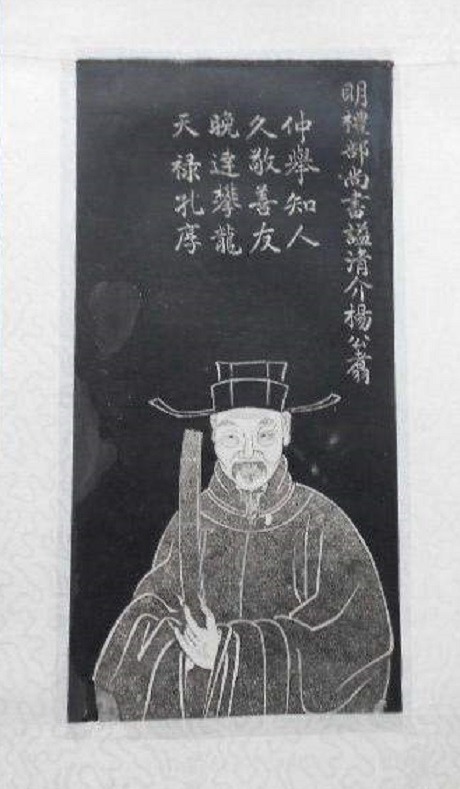 明禮部尚書謚清介楊公翥
仲舉知人
久敬善友
晚達攀龍
天祿孔厚